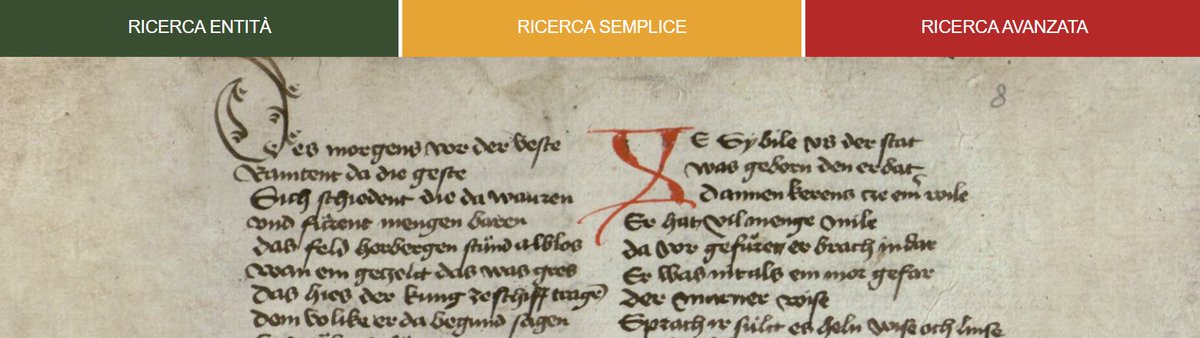 RICERCA ENTITÀ
RICERCA SEMPLICE
RICERCA AVANZATA
8
Des morgens vor der veste
Rantent da die geste
Sich schiedent die da wauren
vnd fůrent mengen baren
das feld horbergen stůnd al blos
wan ein gezelt das was gros
Das hies der kung ze schiff tragē
dem volke er da begund sagen
E Sybile vs der stat
was geborn den er bat
Dannen kerens cze em̄ wile
Er hat vil menge mile
da vor gefůren er brach in dar
Er was nit als ein mor gefar
der marner wise
Sprach ir sůlt es heln wise och linse